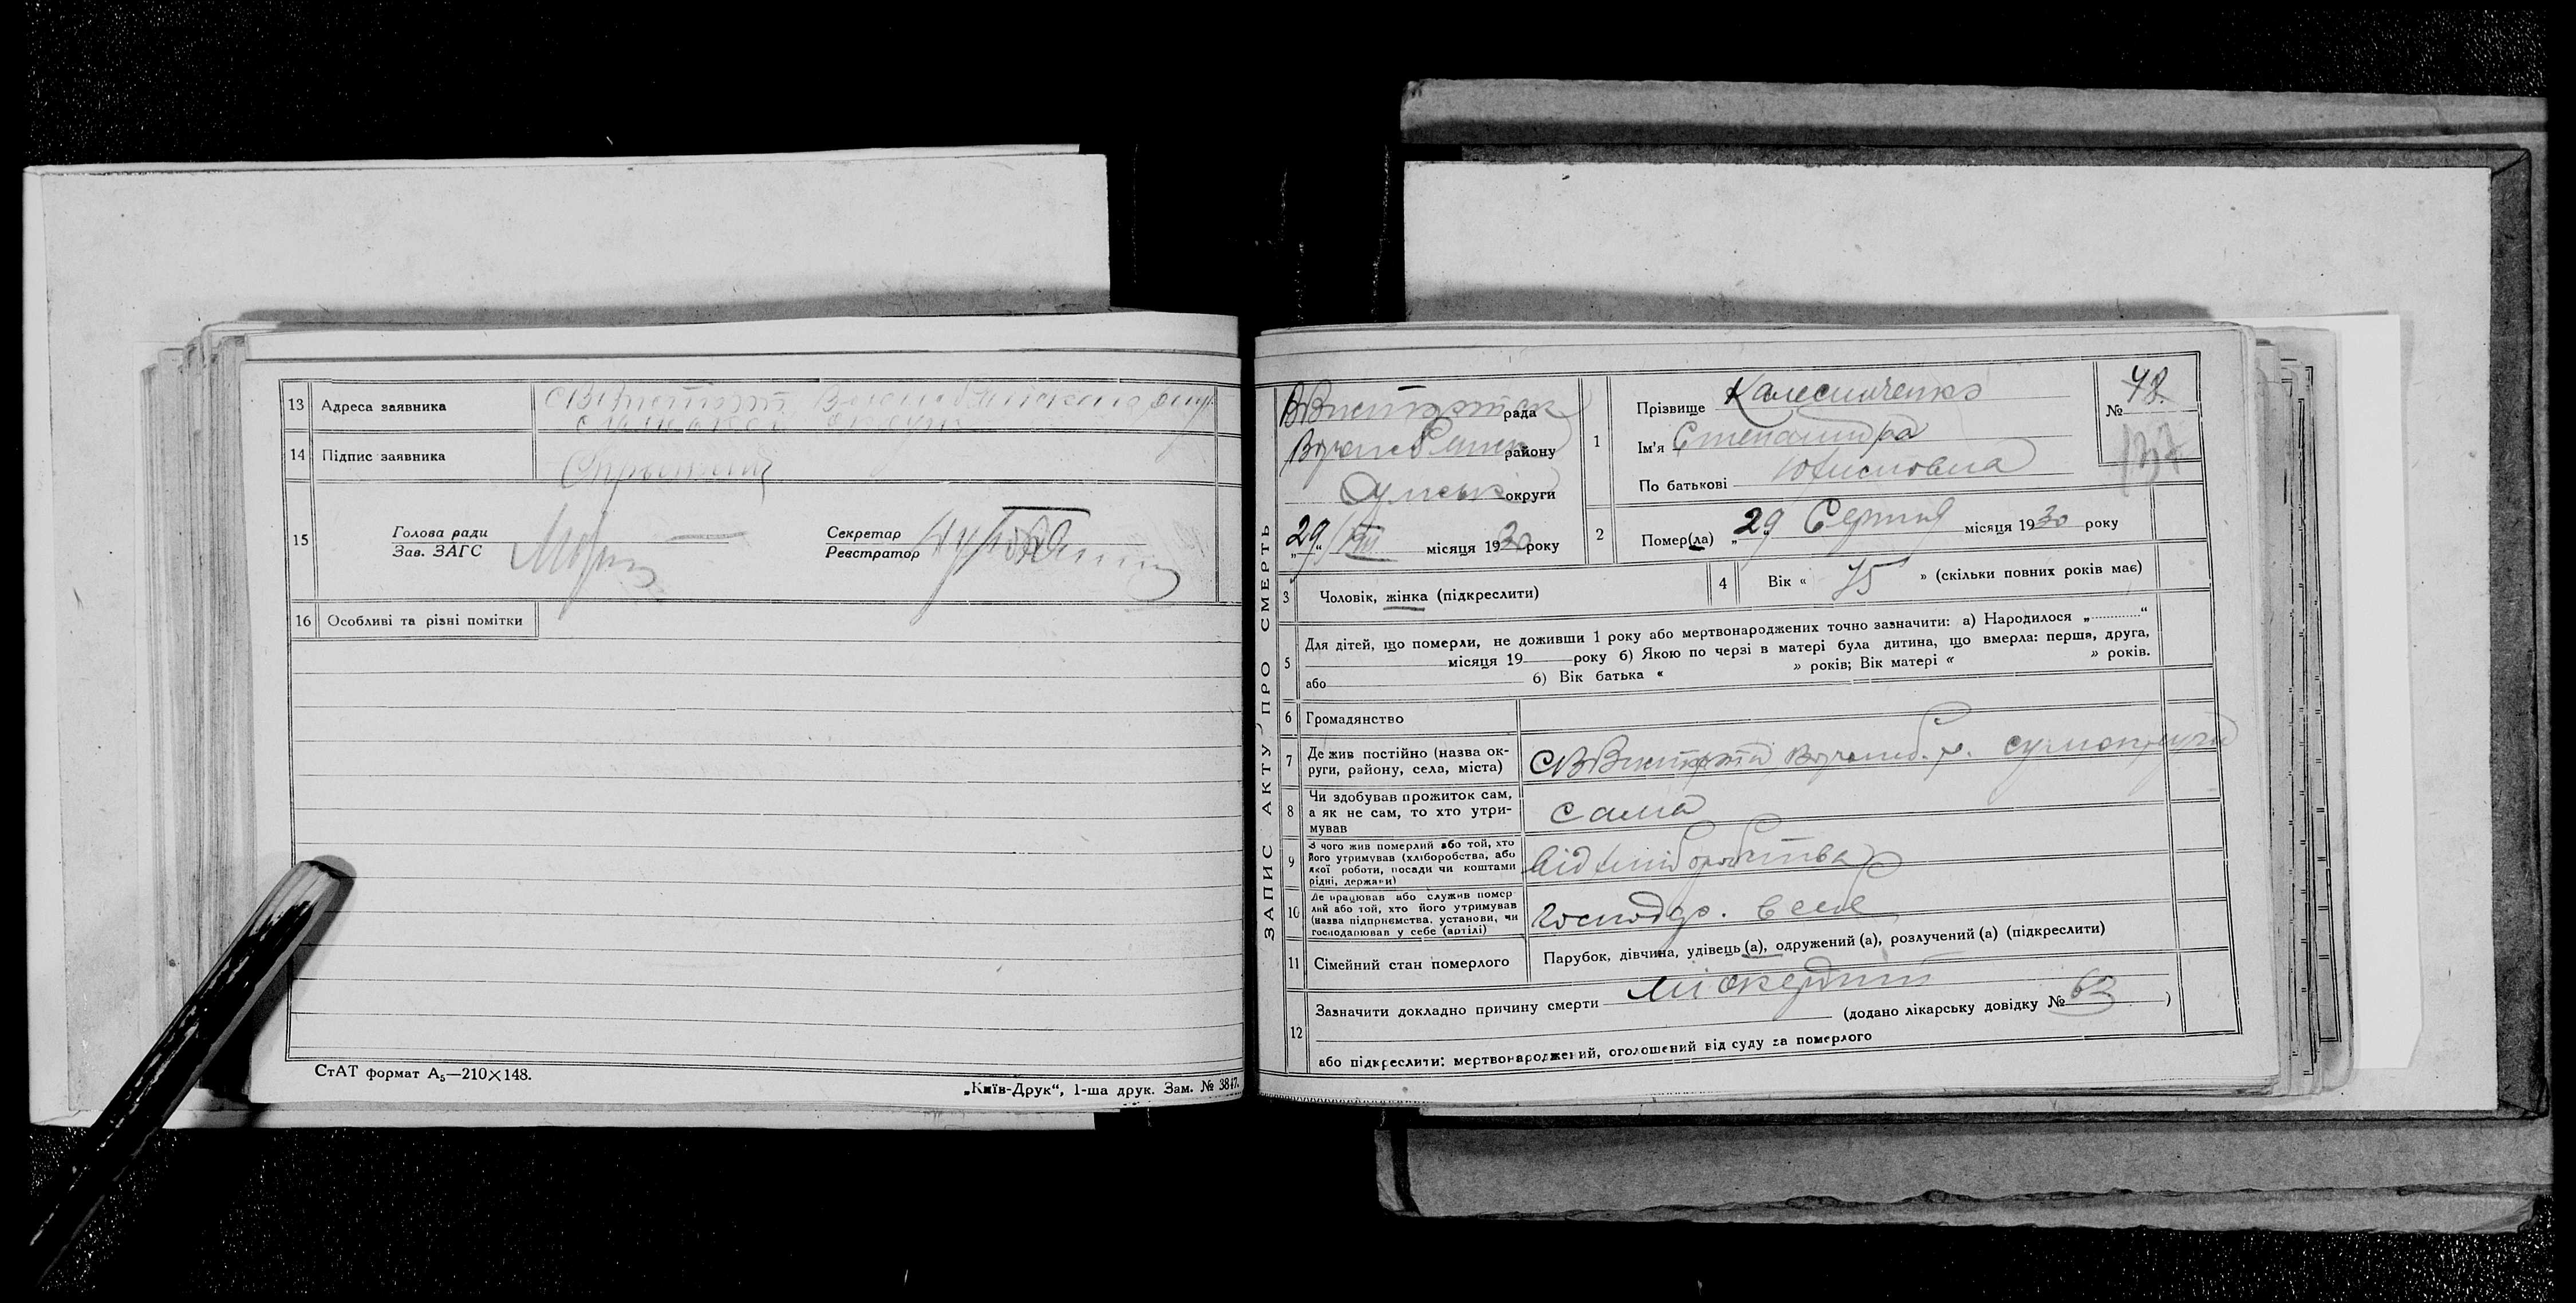 13 Адреса заявника
14 Підпис заявника
15 Голова ради
Зав. ЗАГС
Секретар
Реєстратор
16 Особливі та різні помітки
СтАТ формат А5—210×148.
„Київ-Друк“, 1-ша друк. Зам. № 3847.
ЗАПИС АКТУ ПРО СМЕРТЬ
рада
району
Сумськ округи
„29“ VIII місяця 1930 року
1 Прізвище Калесниченко
Ім'я Степанида
По батькові
№ 48.
137
2 Помер(ла) „29 Серпня місяця 1930 року
3 Чоловік, жінка (підкреслити)
4 Вік « 75 » (скільки повних років має)
5 Для дітей, що померли, не доживши 1 року або мертвонароджених точно зазначити: а) Народилося „ “
місяця 19 року б) Якою по черзі в матері була дитина, що вмерла: перша, друга,
або б) Вік батька « » років; Вік матері « » років.
6 Громадянство
7 Де жив постійно (назва ок-
руги, району, села, міста)
8 Чи здобував прожиток сам,
а як не сам, то хто утри-
мував
сама
9 З чого жив померлий або той, хто
його утримував (хліборобства, або
якої роботи, посади чи коштами
рідні, держави)
від хліборобства
10 Де працював або служив помер
лий або той, хто його утримував
(назва підприємства, установи, чи
господарював у себе (артілі)
Господар. в себе
11 Сімейний стан померлого
Парубок, дівчина, удівець (а), одружений (а), розлучений (а) (підкреслити)
12 Зазначити докладно причину смерти
(додано лікарську довідку № 63 )
або підкреслити: мертвонароджений, оголошений від суду за померлого